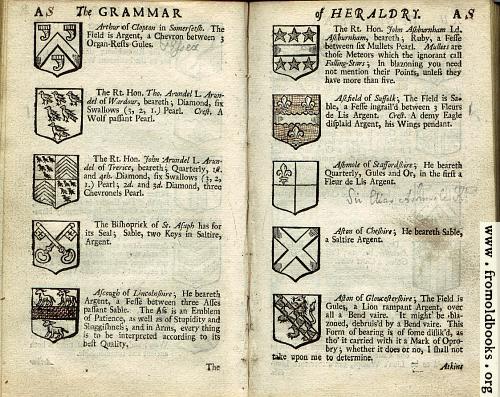 A S The GRAMMAR
Arthur of Clopton in Somersetsh. The
Field is Argent, a Chevron between 3
Organ-Rests Gules.
The Rt. Hon. Tho. Arundel L. Arun-
del of Wardour, beareth; Diamond, six
Swallows (3, 2, 1.) Pearl. Crest, A
Wolf passant Pearl.
The Rt. Hon. John Arundel L. Arun-
del of Trerice, beareth; Quarterly, 1st.
and 4th. Diamond, six Swallows (3, 2,
1.) Pearl; 2d. and 3d. Diamond, three
Chevronels Pearl.
The Bishoprick of St. Asaph has for
its Seal; Sable, two Keys in Saltire,
Argent.
Ascough of Lincolnshire; He beareth
Argent, a Fesse between three Asses
passant Sable. The Ass is an Emblem
of Patience, as well as of Stupidity and
Sluggishness; and in Arms, every thing
is to be interpreted according to its
best Quality.
The
of HERALDRY. A S
The Rt. Hon. John Ashburnham Ld.
Ashburnham, beareth; Ruby, a Fesse
between six Mullets Pearl. Mullets are
those Meteors which the ignorant call
Falling-Stars; In blazoning you need
not mention their Points, unless they
have more than five.
Ashfield of Suffolk; The Field is Sa-
ble, a Fesse ingrail'd between 3 Fleurs
de Lis Argent. Crest. A demy Eagle
displaid Argent, his Wings pendant.
Ashmole of Staffordshire; He beareth
Quarterly, Gules and Or, in the first a
Fleur de Lis Argent.
Aston of Cheshire; He beareth Sable,
a Saltire Argent.
Aston of Gloucestershire; The Field is
Gules, a Lion rampant Argent, over
all a Bend vaire. It might be bla-
zoned, debruis'd by a Bend vaire. This
Form of bearing is of some dislik'd, as
tho' it carried with it a Mark of Opro-
bry; whether it does or no, I shall not
take upon me to determine.
Atkins
www.fromoldbooks.org